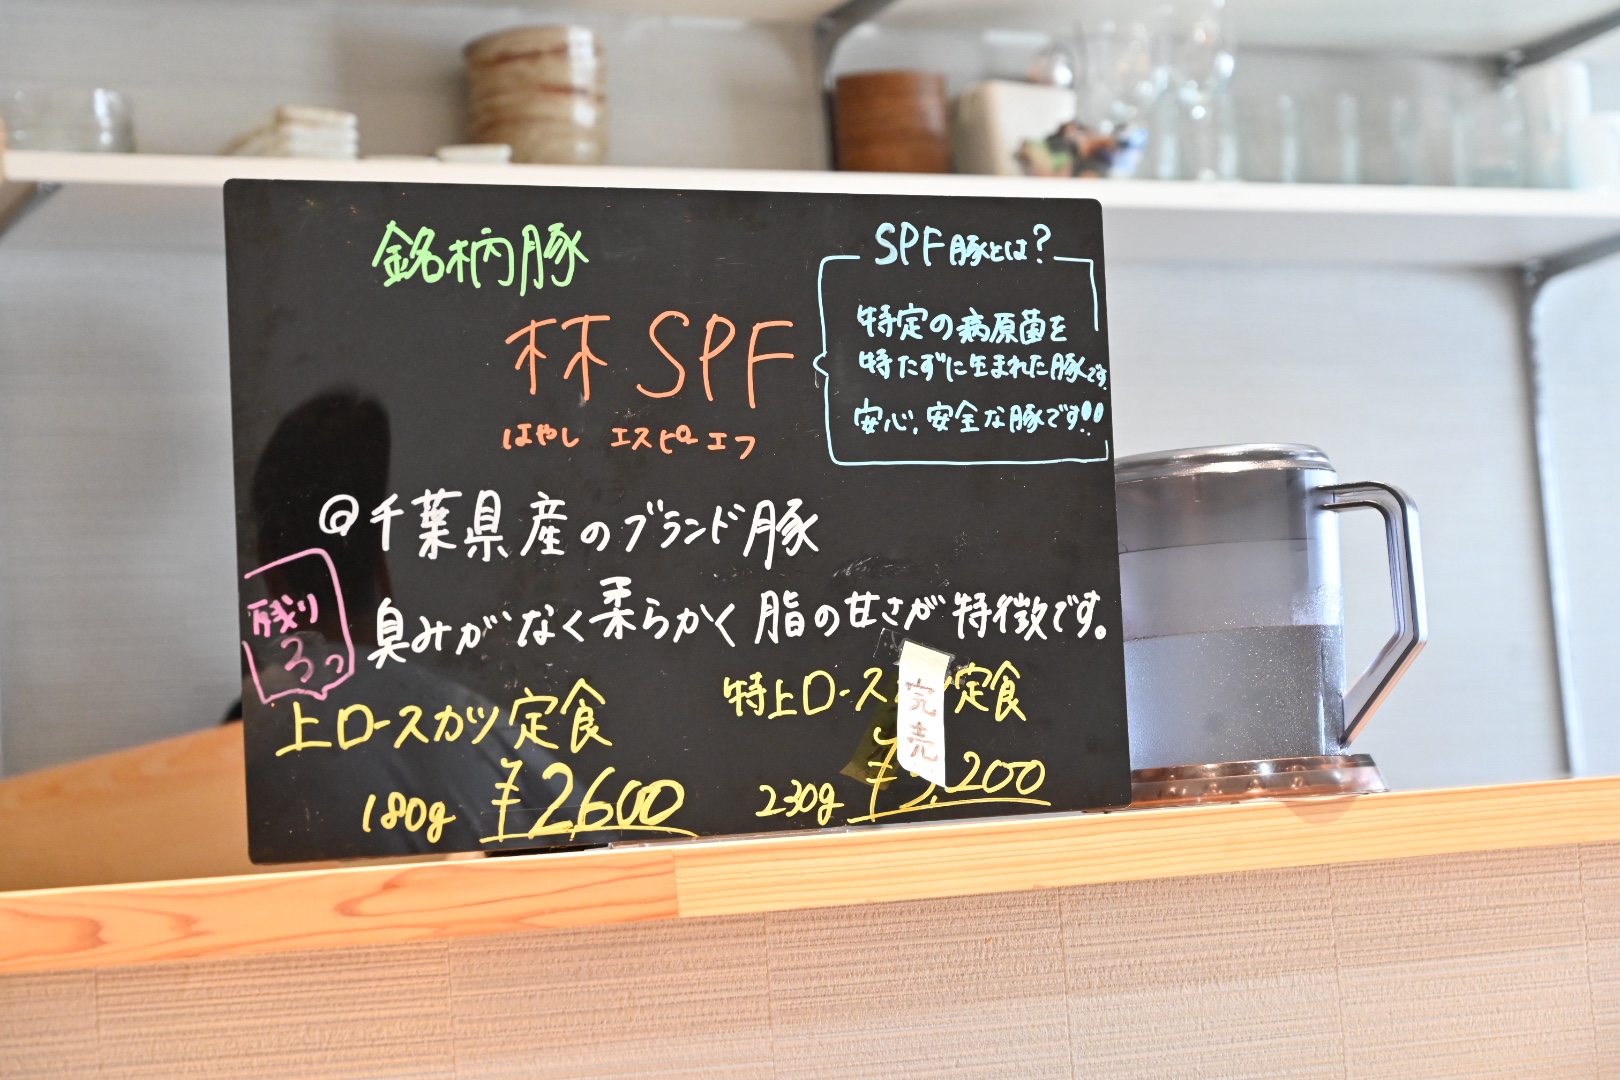 銘柄豚
林SPF
はやし エスピーエフ
SPF豚とは?
特定の病原菌を
特たずに生まれた豚です。
安心、安全な豚です!!
@千葉県産のブランド豚
臭みがなく柔らかく脂の甘さが特徴です。
残り
3つ
上ロースカツ定食
180g ¥2600
特上ロースカツ定食
完売
230g ¥3,200